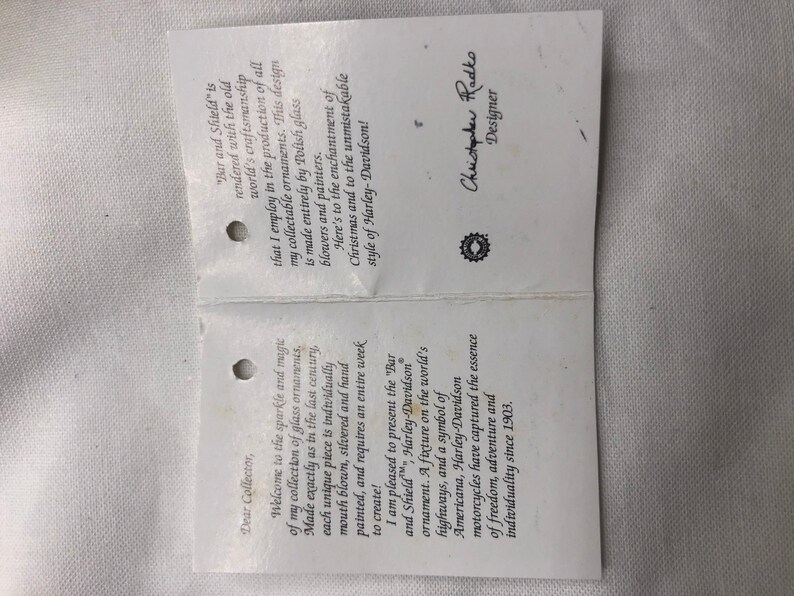 Dear Collector,
Welcome to the sparkle and magic
of my collection of glass ornaments.
Made exactly as in the last century,
each unique piece is individually
mouth blown, silvered and hand
painted, and requires an entire week
to create!
I am pleased to present the "Bar
and Shield™", Harley-Davidson®
ornament. A fixture on the world's
highways, and a symbol of
Americana, Harley-Davidson
motorcycles have captured the essence
of freedom, adventure and
individuality since 1903.
"Bar and Shield" is
rendered with the old
world's craftsmanship
that I employ in the production of all
my collectable ornaments. This design
is made entirely by Polish glass
blowers and painters.
Here's to the enchantment of
Christmas and to the unmistakable
style of Harley-Davidson!
Christopher Radko
Designer